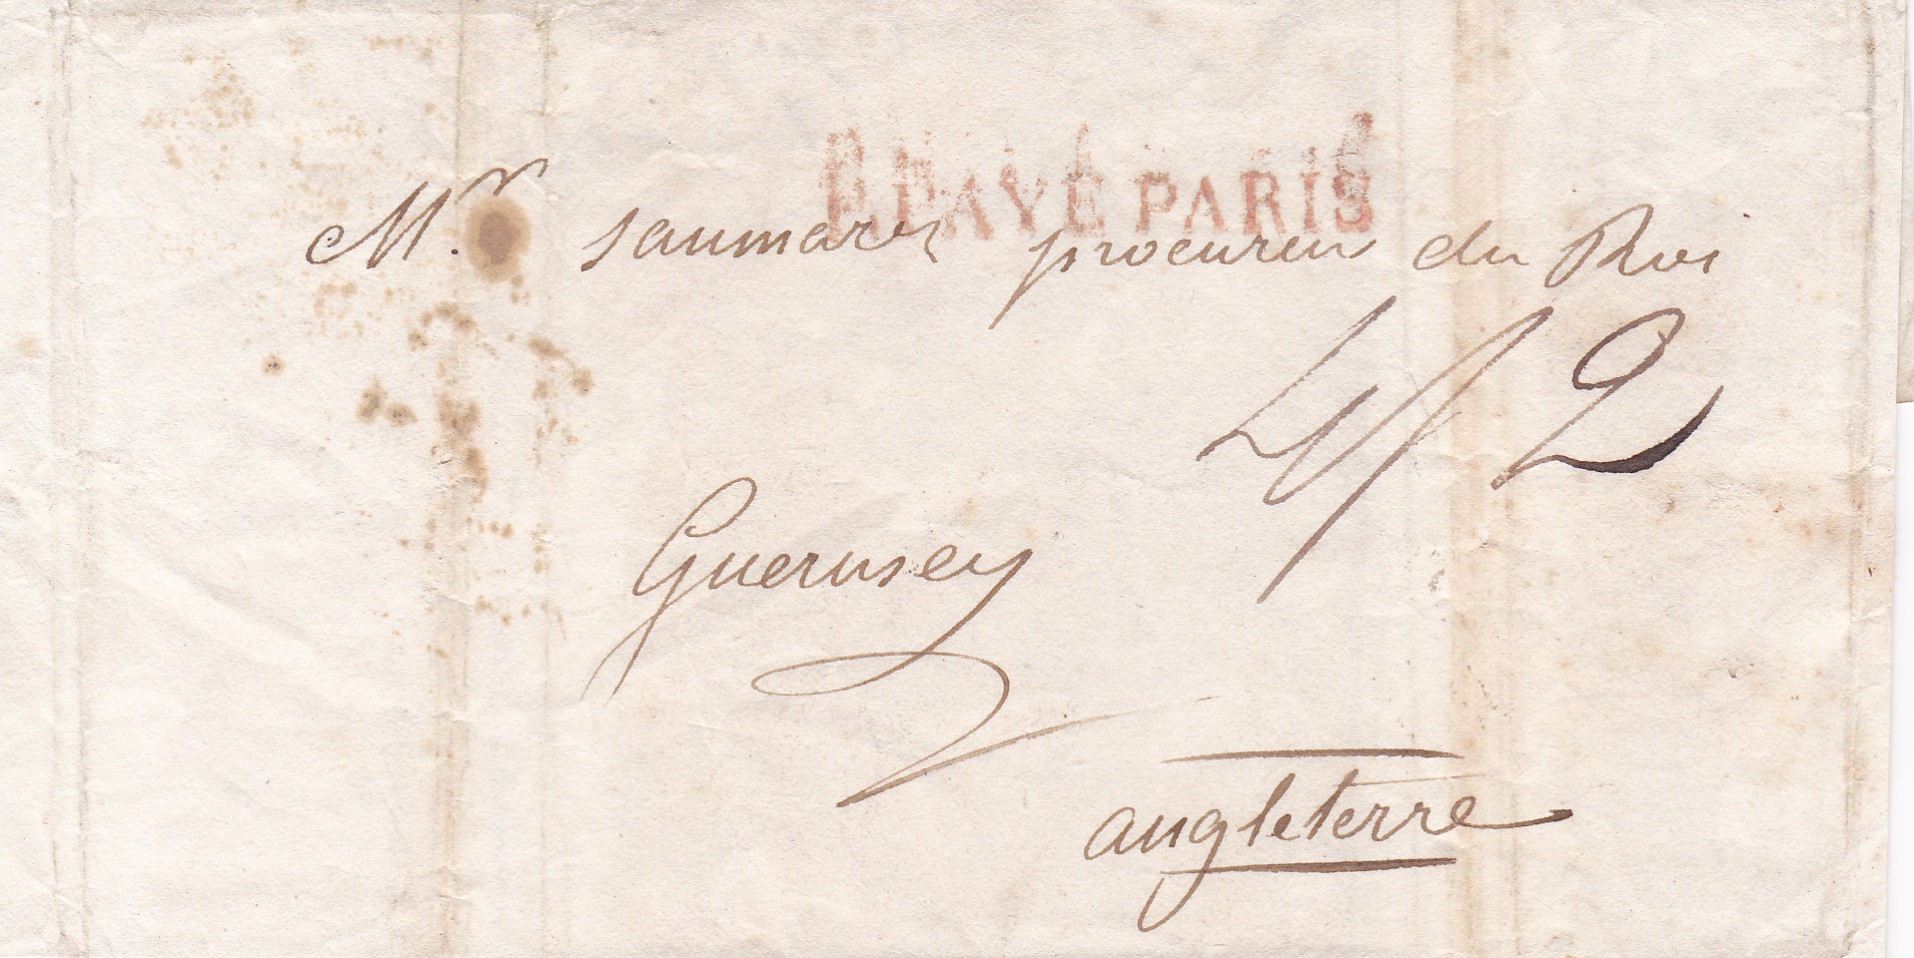 P. PAYÉ PARIS
Mr. saumarez procureur du Roi
4/2
Guernsey
angleterre